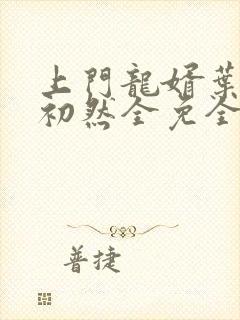 上門龍婿葉
初然全免全
普捷